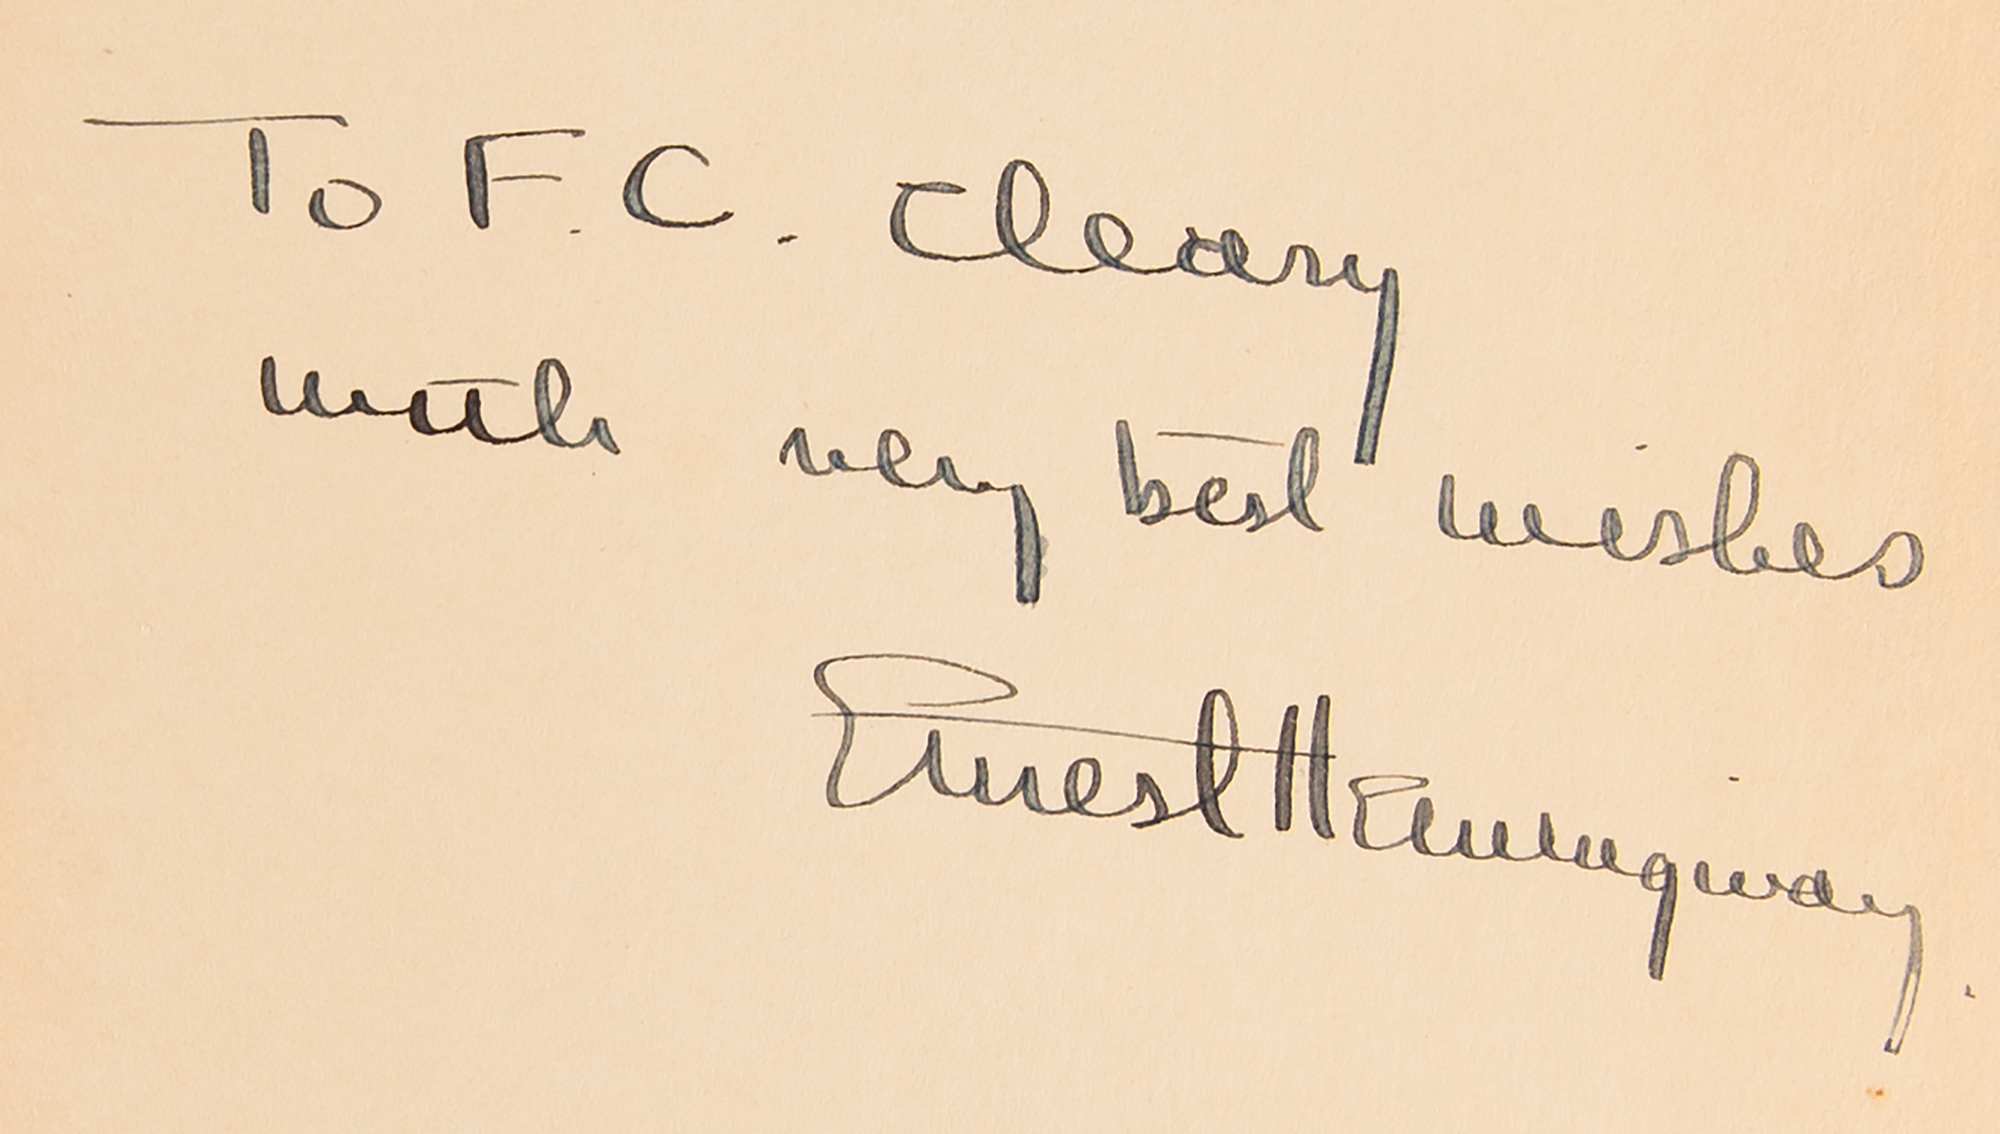 To F.C. Cleary
with very best wishes
Ernest Hemingway.